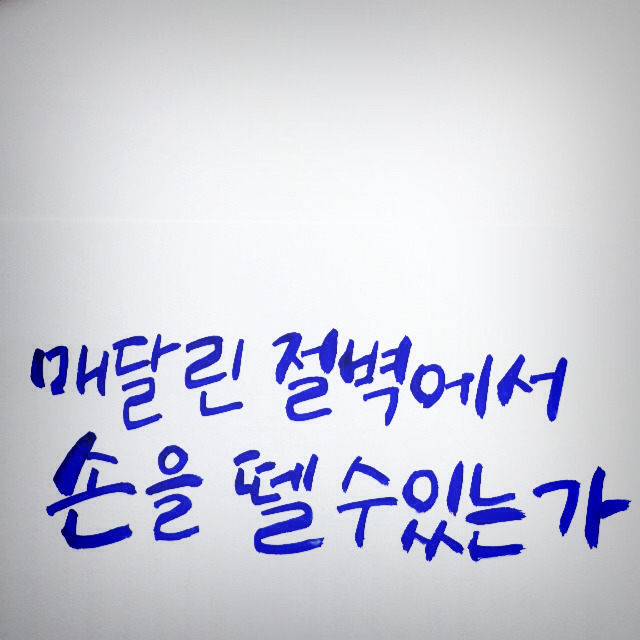 매달린 절벽에서
손을 뗄 수있는가